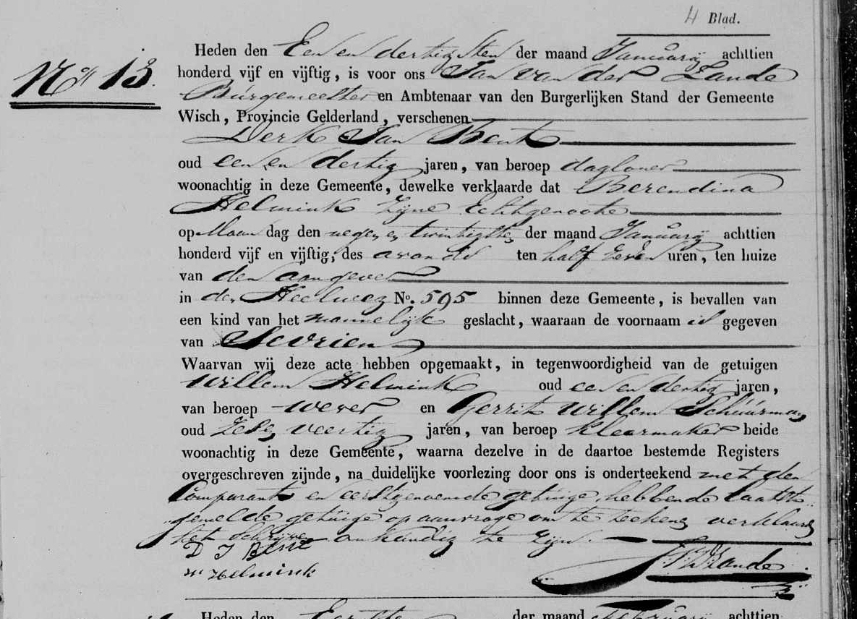 4 Blad.
Nº 13.
Heden den Een en dertigsten der maand Januarij achttien
honderd vijf en vijftig, is voor ons Jan van der Zande
Burgemeester en Ambtenaar van den Burgerlijken Stand der Gemeente
Wisch, Provincie Gelderland, verschenen
Derk Jan Bent
oud een en dertig jaren, van beroep dagloner
woonachtig in deze Gemeente, dewelke verklaarde dat Berendina
Helmink zijne Echtgenoote
op Maan dag den negen en twintigsten der maand Januarij achttien
honderd vijf en vijftig, des avonds ten half zeven uren, ten huize
van den aangever
in den Heelweg No. 595 binnen deze Gemeente, is bevallen van
een kind van het mannelijk geslacht, waaraan de voornaam is gegeven
van
Waarvan wij deze acte hebben opgemaakt, in tegenwoordigheid van de getuigen
Willem Helmink oud een en dertig jaren,
van beroep wever en Gerrit Willem Schuurman
oud zes en veertig jaren, van beroep kleermaker beide
woonachtig in deze Gemeente, waarna dezelve in de daartoe bestemde Registers
overgeschreven zijnde, na duidelijke voorlezing door ons is onderteekend met den
Comparant en eerstgenoemde getuige, hebbende laatst
gemelde getuige op aanvrage om te teekenen verklaard
het schrijven onkundig te zijn.
D J Bent
W Helmink
JvdZande
Heden den Eersten der maand Februarij achttien